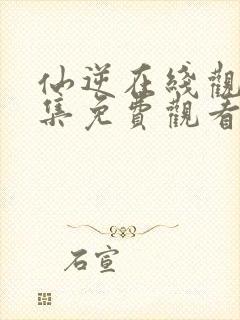 仙逆在綫觀
集免費觀看
石宣